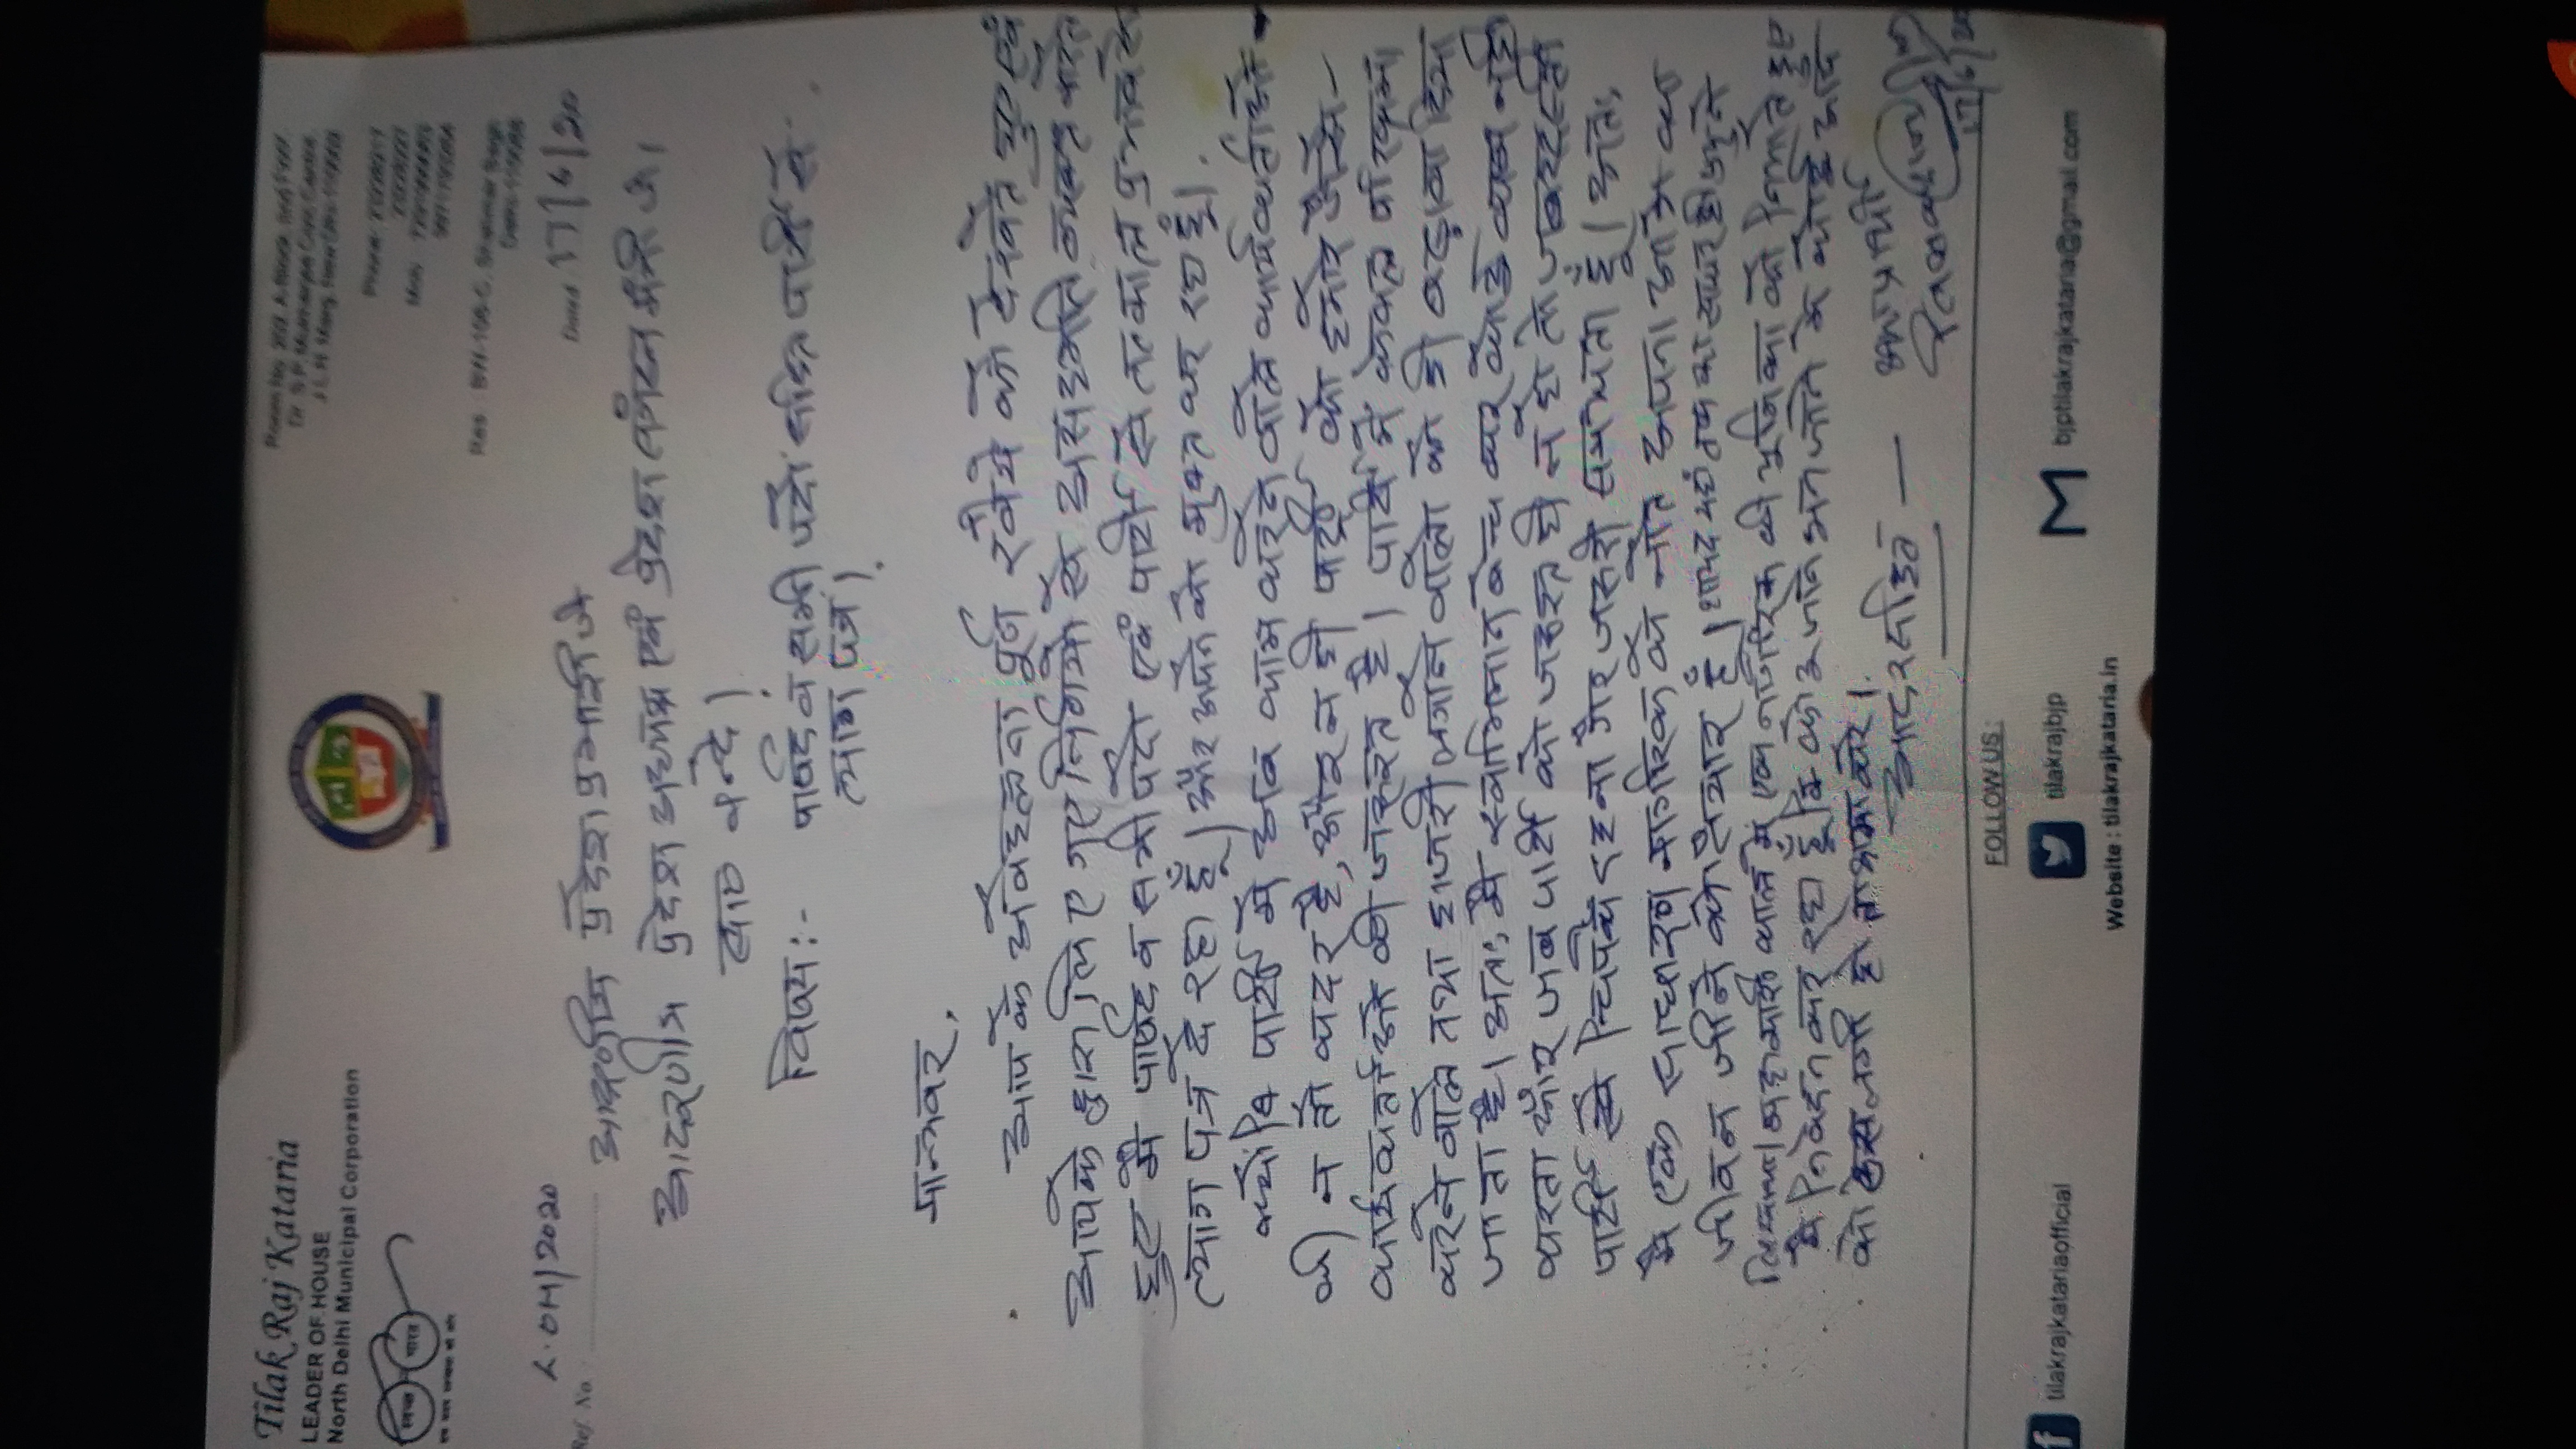 Tilak Raj Kataria
LEADER OF HOUSE
North Delhi Municipal Corporation
स्वच्छ भारत
एक कदम स्वच्छता की ओर
Res : BW-106-C, Shalimar Bagh
Ref. No. L.OH/2020
Dated 17/6/20
आदरणीय प्रदेश प्रभारी जी
आदरणीय प्रदेश अध्यक्ष एवं प्रदेश संगठन मंत्री जी।
वन्दे।
विषय:- पार्षद व सभी पदों सहित पार्टी से
त्याग पत्र।
मान्यवर,
आप के अवेहलना पूर्ण रवैये को देखते हुए एवं
आपके द्वारा लिए गए निर्णयो से असहमति व्यक्त करते
हुए मै पार्षद व सभी पदो एवं पार्टी से तत्काल प्रभाव से
त्याग पत्र दे रहा हूँ। और अपने को मुक्त कर रहा हूँ।
क्योंकि पार्टी मे अब काम करने वाले कार्यकर्ताओ
की न तो कदर है, और न ही पार्टी को हमारे जैसे
कार्यकर्ताओ की जरूरत है। पार्टी में केवल परिक्रमा
करने वाले तथा हाजरी लगाने वालो को ही बढ़ावा दिया
जाता है। अतः मै स्वाभिमान बेच कर कोई काम नही
करता और जब पार्टी को जरूरत ही न हो तो जबरदस्ती
पार्टी से चिपके रहना गैर जरूरी समझता हूँ। अतः
मै एक साधारण नागरिक के नाते अपना आगे का
जीवन जीने को तैयार हूँ। शायद यहाँ तक का सफर ही प्रभु ने
लिखा था। महामारी काल मे एक नागरिक की भूमिका को निभाते हुए
मै निवेदन कर रहा हूँ कि कोई जाने अनजाने मे कोई आप
को ठेस लगी हो तो क्षमा करे।
आदरसहित — क्षमाप्रार्थी
17/6/20
FOLLOW US :
tilakrajkatariaofficial tilakrajbjp bjptilakrajkataria@gmail.com
Website : tilakrajkataria.in